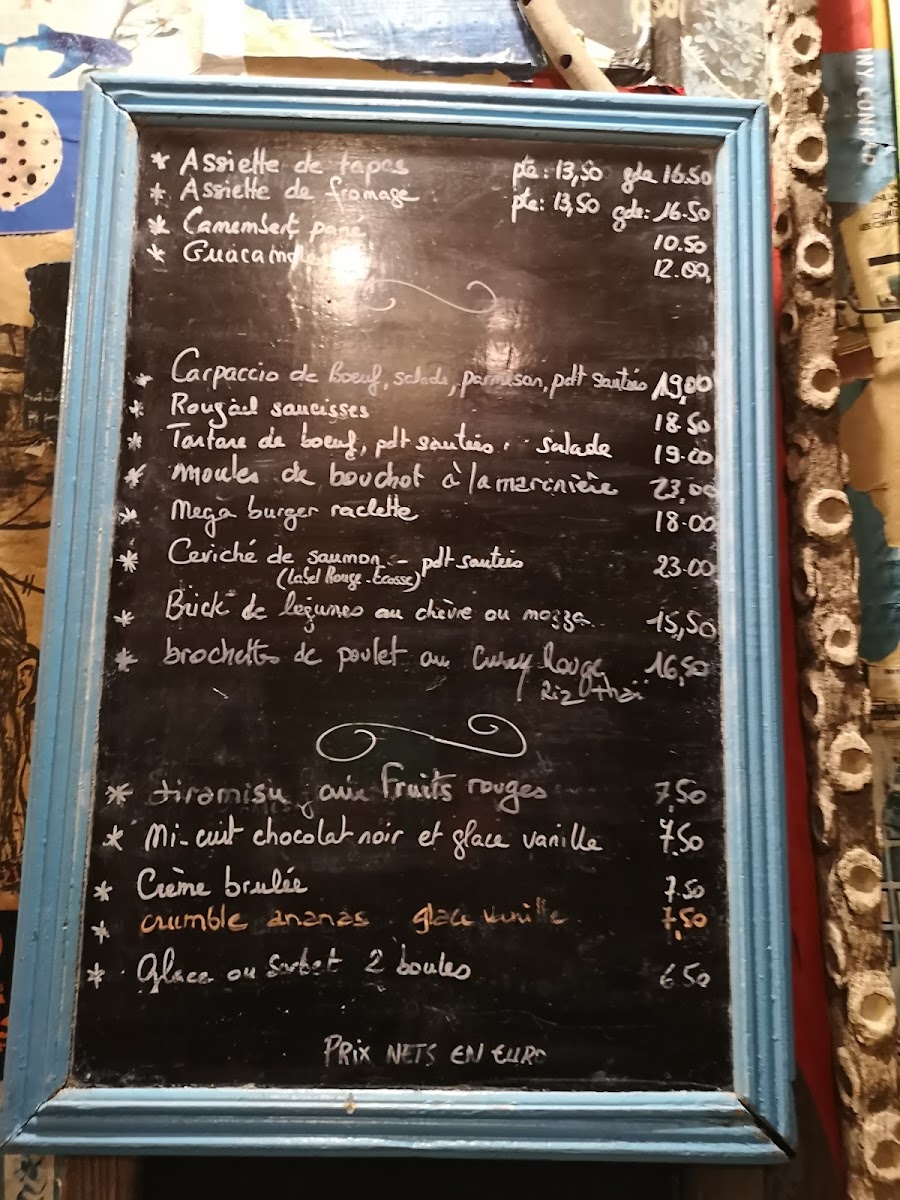 * Assiette de tapas pte: 13,50 gde 16.50
* Assiette de fromage pte: 13,50 gde: 16.50
* Camembert pané 10.50
* Guacamole 12.00
* Carpaccio de Boeuf, salade, parmesan, pdt sautées 19,00
* Rougail saucisses 18.50
* Tartare de boeuf, pdt sautées salade 19.00
* Moules de bouchot à la marinière 23,00
* Mega burger raclette 18.00
* Ceviché de saumon - pdt sautées 23.00
(Label Rouge - Ecosse)
* Brick de legumes au chèvre ou mozza 15,50
* brochettes de poulet au Curry Rouge 16,50
Riz thaï
* tiramisu aux Fruits rouges 7,50
* Mi-cuit chocolat noir et glace vanille 7.50
* Crème brulée 7.50
* crumble ananas glace vanille 7,50
* Glace ou Sorbet 2 boules 6.50
PRIX NETS EN EURO
NY CONRAD